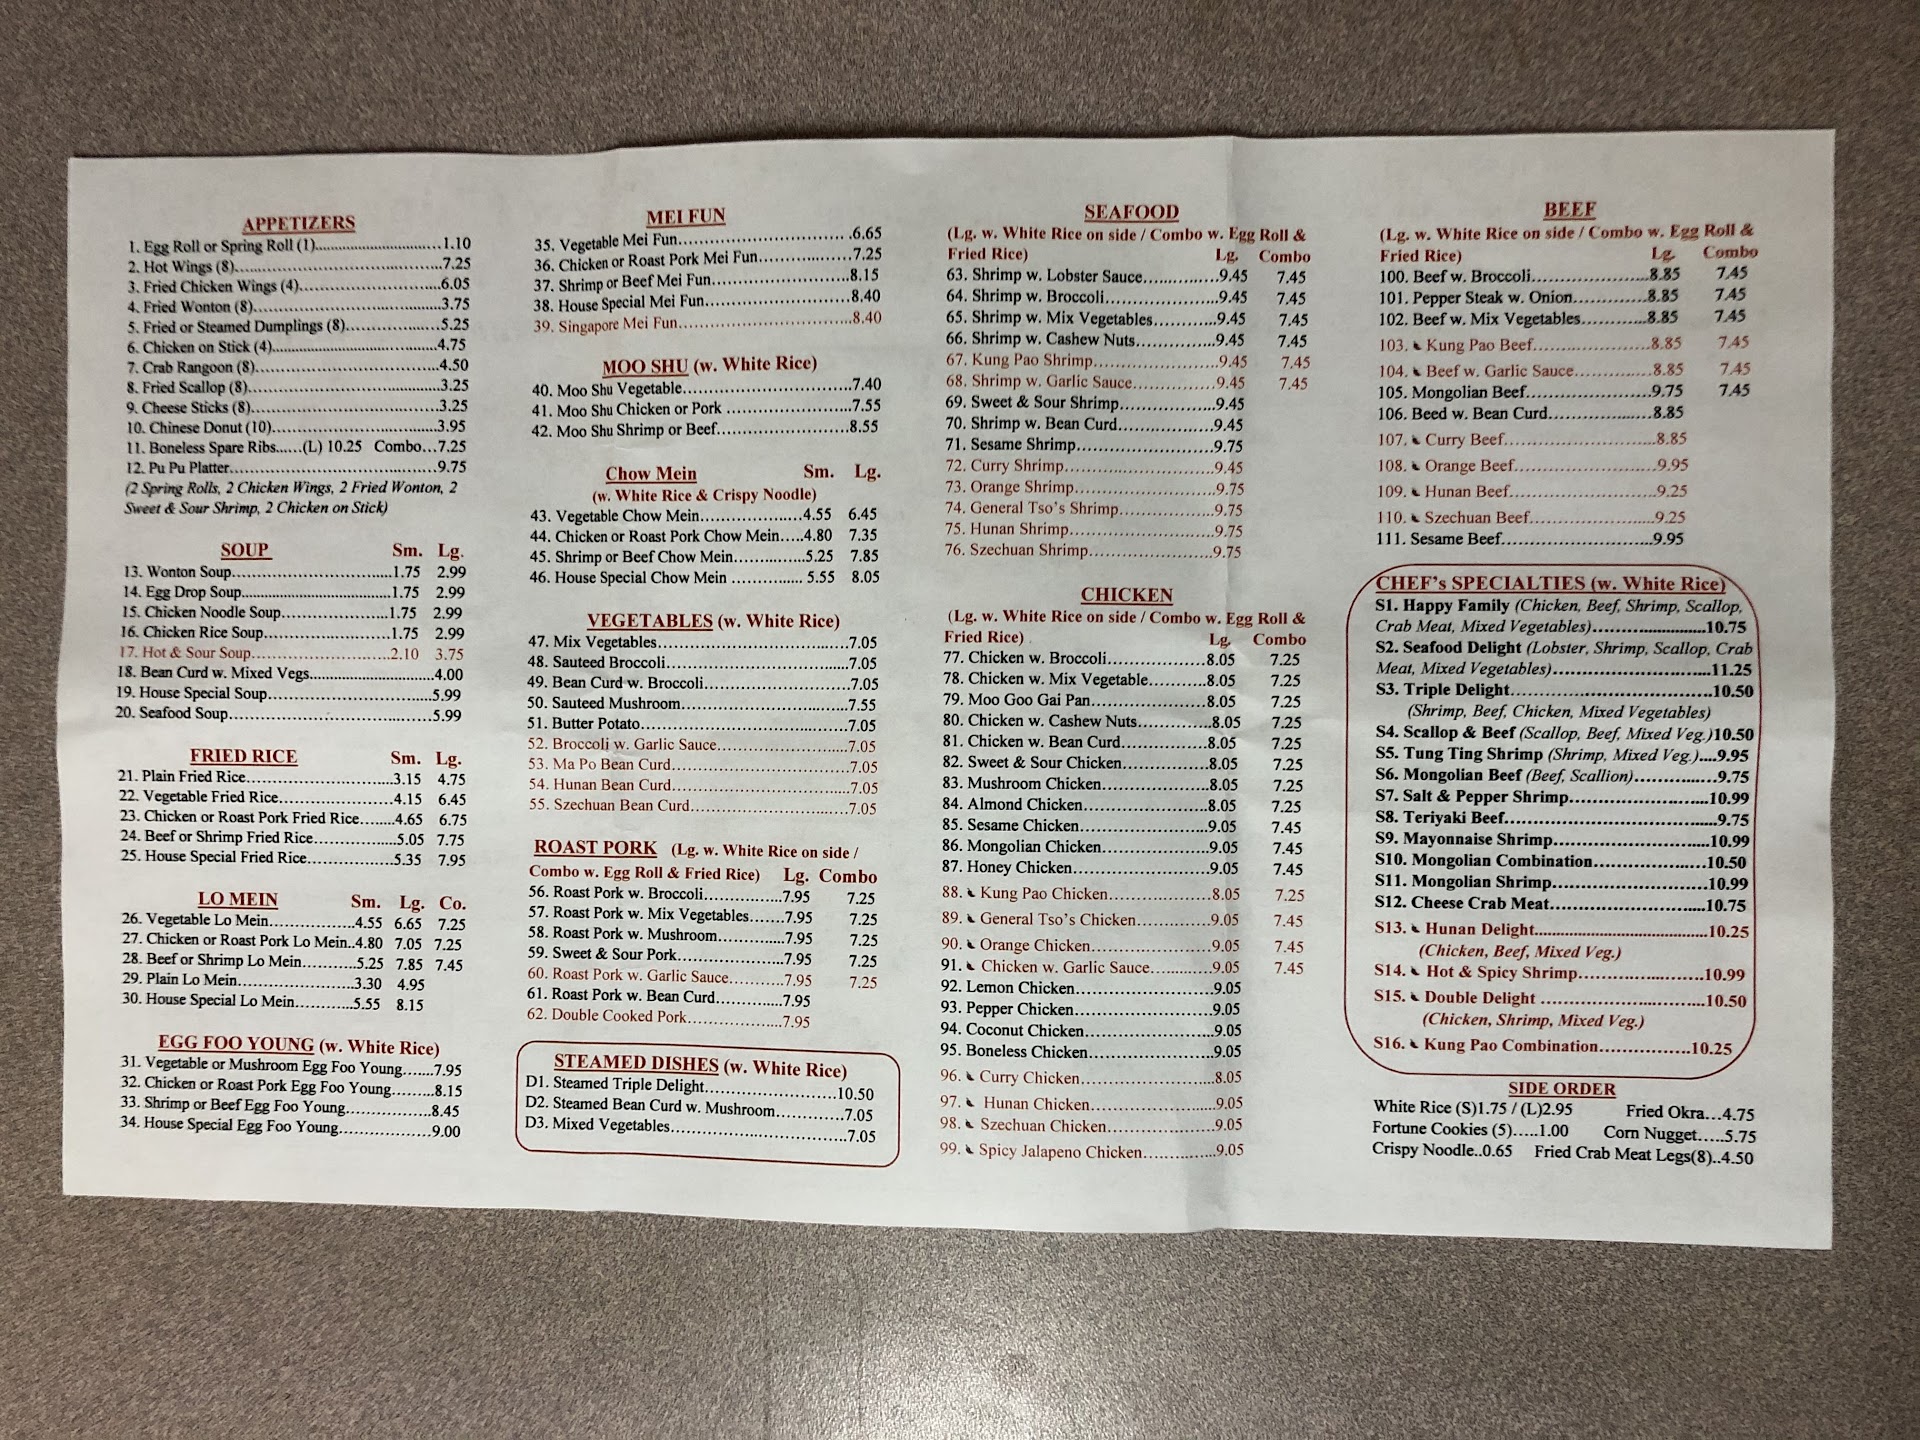 APPETIZERS
1. Egg Roll or Spring Roll (1)..............................1.10
2. Hot Wings (8)..............................7.25
3. Fried Chicken Wings (4)..............................6.05
4. Fried Wonton (8)..............................3.75
5. Fried or Steamed Dumplings (8)....................5.25
6. Chicken on Stick (4)..............................4.75
7. Crab Rangoon (8)..............................4.50
8. Fried Scallop (8)..............................3.25
9. Cheese Sticks (8)..............................3.25
10. Chinese Donut (10)..............................3.95
11. Boneless Spare Ribs.....(L) 10.25 Combo...7.25
12. Pu Pu Platter..............................9.75
(2 Spring Rolls, 2 Chicken Wings, 2 Fried Wonton, 2
Sweet & Sour Shrimp, 2 Chicken on Stick)
SOUP Sm. Lg.
13. Wonton Soup....................1.75 2.99
14. Egg Drop Soup....................1.75 2.99
15. Chicken Noodle Soup....................1.75 2.99
16. Chicken Rice Soup....................1.75 2.99
17. Hot & Sour Soup....................2.10 3.75
18. Bean Curd w. Mixed Vegs....................4.00
19. House Special Soup....................5.99
20. Seafood Soup....................5.99
FRIED RICE Sm. Lg.
21. Plain Fried Rice....................3.15 4.75
22. Vegetable Fried Rice....................4.15 6.45
23. Chicken or Roast Pork Fried Rice.......4.65 6.75
24. Beef or Shrimp Fried Rice...............5.05 7.75
25. House Special Fried Rice...............5.35 7.95
LO MEIN Sm. Lg. Co.
26. Vegetable Lo Mein...............4.55 6.65 7.25
27. Chicken or Roast Pork Lo Mein..4.80 7.05 7.25
28. Beef or Shrimp Lo Mein..........5.25 7.85 7.45
29. Plain Lo Mein....................3.30 4.95
30. House Special Lo Mein..........5.55 8.15
EGG FOO YOUNG (w. White Rice)
31. Vegetable or Mushroom Egg Foo Young.......7.95
32. Chicken or Roast Pork Egg Foo Young........8.15
33. Shrimp or Beef Egg Foo Young...............8.45
34. House Special Egg Foo Young...............9.00
MEI FUN
35. Vegetable Mei Fun..............................6.65
36. Chicken or Roast Pork Mei Fun...............7.25
37. Shrimp or Beef Mei Fun....................8.15
38. House Special Mei Fun....................8.40
39. Singapore Mei Fun....................8.40
MOO SHU (w. White Rice)
40. Moo Shu Vegetable....................7.40
41. Moo Shu Chicken or Pork ....................7.55
42. Moo Shu Shrimp or Beef....................8.55
Chow Mein Sm. Lg.
(w. White Rice & Crispy Noodle)
43. Vegetable Chow Mein....................4.55 6.45
44. Chicken or Roast Pork Chow Mein.....4.80 7.35
45. Shrimp or Beef Chow Mein..............5.25 7.85
46. House Special Chow Mein ............ 5.55 8.05
VEGETABLES (w. White Rice)
47. Mix Vegetables..............................7.05
48. Sauteed Broccoli..............................7.05
49. Bean Curd w. Broccoli....................7.05
50. Sauteed Mushroom....................7.55
51. Butter Potato..............................7.05
52. Broccoli w. Garlic Sauce....................7.05
53. Ma Po Bean Curd....................7.05
54. Hunan Bean Curd....................7.05
55. Szechuan Bean Curd....................7.05
ROAST PORK (Lg. w. White Rice on side /
Combo w. Egg Roll & Fried Rice) Lg. Combo
56. Roast Pork w. Broccoli...............7.95 7.25
57. Roast Pork w. Mix Vegetables.......7.95 7.25
58. Roast Pork w. Mushroom............7.95 7.25
59. Sweet & Sour Pork....................7.95 7.25
60. Roast Pork w. Garlic Sauce..........7.95 7.25
61. Roast Pork w. Bean Curd............7.95
62. Double Cooked Pork..................7.95
STEAMED DISHES (w. White Rice)
D1. Steamed Triple Delight....................10.50
D2. Steamed Bean Curd w. Mushroom..........7.05
D3. Mixed Vegetables..............................7.05
SEAFOOD
(Lg. w. White Rice on side / Combo w. Egg Roll &
Fried Rice) Lg. Combo
63. Shrimp w. Lobster Sauce.............9.45 7.45
64. Shrimp w. Broccoli....................9.45 7.45
65. Shrimp w. Mix Vegetables...........9.45 7.45
66. Shrimp w. Cashew Nuts...............9.45 7.45
67. Kung Pao Shrimp....................9.45 7.45
68. Shrimp w. Garlic Sauce...............9.45 7.45
69. Sweet & Sour Shrimp...............9.45
70. Shrimp w. Bean Curd...............9.45
71. Sesame Shrimp....................9.75
72. Curry Shrimp....................9.45
73. Orange Shrimp....................9.75
74. General Tso's Shrimp...............9.75
75. Hunan Shrimp....................9.75
76. Szechuan Shrimp....................9.75
CHICKEN
(Lg. w. White Rice on side / Combo w. Egg Roll &
Fried Rice) Lg. Combo
77. Chicken w. Broccoli...............8.05 7.25
78. Chicken w. Mix Vegetable..........8.05 7.25
79. Moo Goo Gai Pan...............8.05 7.25
80. Chicken w. Cashew Nuts..........8.05 7.25
81. Chicken w. Bean Curd...............8.05 7.25
82. Sweet & Sour Chicken...............8.05 7.25
83. Mushroom Chicken...............8.05 7.25
84. Almond Chicken....................8.05 7.25
85. Sesame Chicken....................9.05 7.45
86. Mongolian Chicken...............9.05 7.45
87. Honey Chicken....................9.05 7.45
88. Kung Pao Chicken...............8.05 7.25
89. General Tso's Chicken..........9.05 7.45
90. Orange Chicken...............9.05 7.45
91. Chicken w. Garlic Sauce..........9.05 7.45
92. Lemon Chicken....................9.05
93. Pepper Chicken....................9.05
94. Coconut Chicken....................9.05
95. Boneless Chicken....................9.05
96. Curry Chicken....................8.05
97. Hunan Chicken....................9.05
98. Szechuan Chicken....................9.05
99. Spicy Jalapeno Chicken.............9.05
BEEF
(Lg. w. White Rice on side / Combo w. Egg Roll &
Fried Rice) Lg. Combo
100. Beef w. Broccoli....................8.85 7.45
101. Pepper Steak w. Onion.............8.85 7.45
102. Beef w. Mix Vegetables...........8.85 7.45
103. Kung Pao Beef....................8.85 7.45
104. Beef w. Garlic Sauce.............8.85 7.45
105. Mongolian Beef....................9.75 7.45
106. Beed w. Bean Curd...............8.85
107. Curry Beef....................8.85
108. Orange Beef....................9.95
109. Hunan Beef....................9.25
110. Szechuan Beef....................9.25
111. Sesame Beef....................9.95
CHEF's SPECIALTIES (w. White Rice)
S1. Happy Family (Chicken, Beef, Shrimp, Scallop,
Crab Meat, Mixed Vegetables)....................10.75
S2. Seafood Delight (Lobster, Shrimp, Scallop, Crab
Meat, Mixed Vegetables)....................11.25
S3. Triple Delight....................10.50
(Shrimp, Beef, Chicken, Mixed Vegetables)
S4. Scallop & Beef (Scallop, Beef, Mixed Veg.)10.50
S5. Tung Ting Shrimp (Shrimp, Mixed Veg.)....9.95
S6. Mongolian Beef (Beef, Scallion)...............9.75
S7. Salt & Pepper Shrimp....................10.99
S8. Teriyaki Beef....................9.75
S9. Mayonnaise Shrimp....................10.99
S10. Mongolian Combination....................10.50
S11. Mongolian Shrimp....................10.99
S12. Cheese Crab Meat....................10.75
S13. Hunan Delight....................10.25
(Chicken, Beef, Mixed Veg.)
S14. Hot & Spicy Shrimp....................10.99
S15. Double Delight ....................10.50
(Chicken, Shrimp, Mixed Veg.)
S16. Kung Pao Combination...............10.25
SIDE ORDER
White Rice (S)1.75 / (L)2.95 Fried Okra...4.75
Fortune Cookies (5).....1.00 Corn Nugget.....5.75
Crispy Noodle..0.65 Fried Crab Meat Legs(8)..4.50